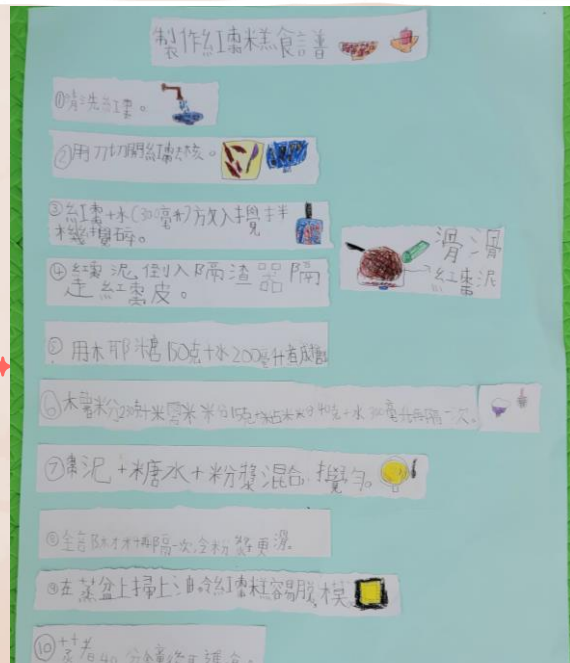 製作紅棗糕食譜
①清洗紅棗。
②用刀切開紅棗去核。
③紅棗+水(300毫升)放入攪拌
機攪碎。
④紅棗泥倒入隔渣器隔
走紅棗皮。
滑滑
紅棗泥
⑤用木耶糖150克+水200毫升煮成
⑥木薯粉250 +米 粉 +粘米粉40克+水300毫升 隔一次。
⑦棗泥+糖水+粉漿混合攪勻。
⑧全部材料再隔一次令粉漿更滑。
⑨在蒸盆上掃上油令紅棗糕容易脫模
⑩蒸煮40分鐘後